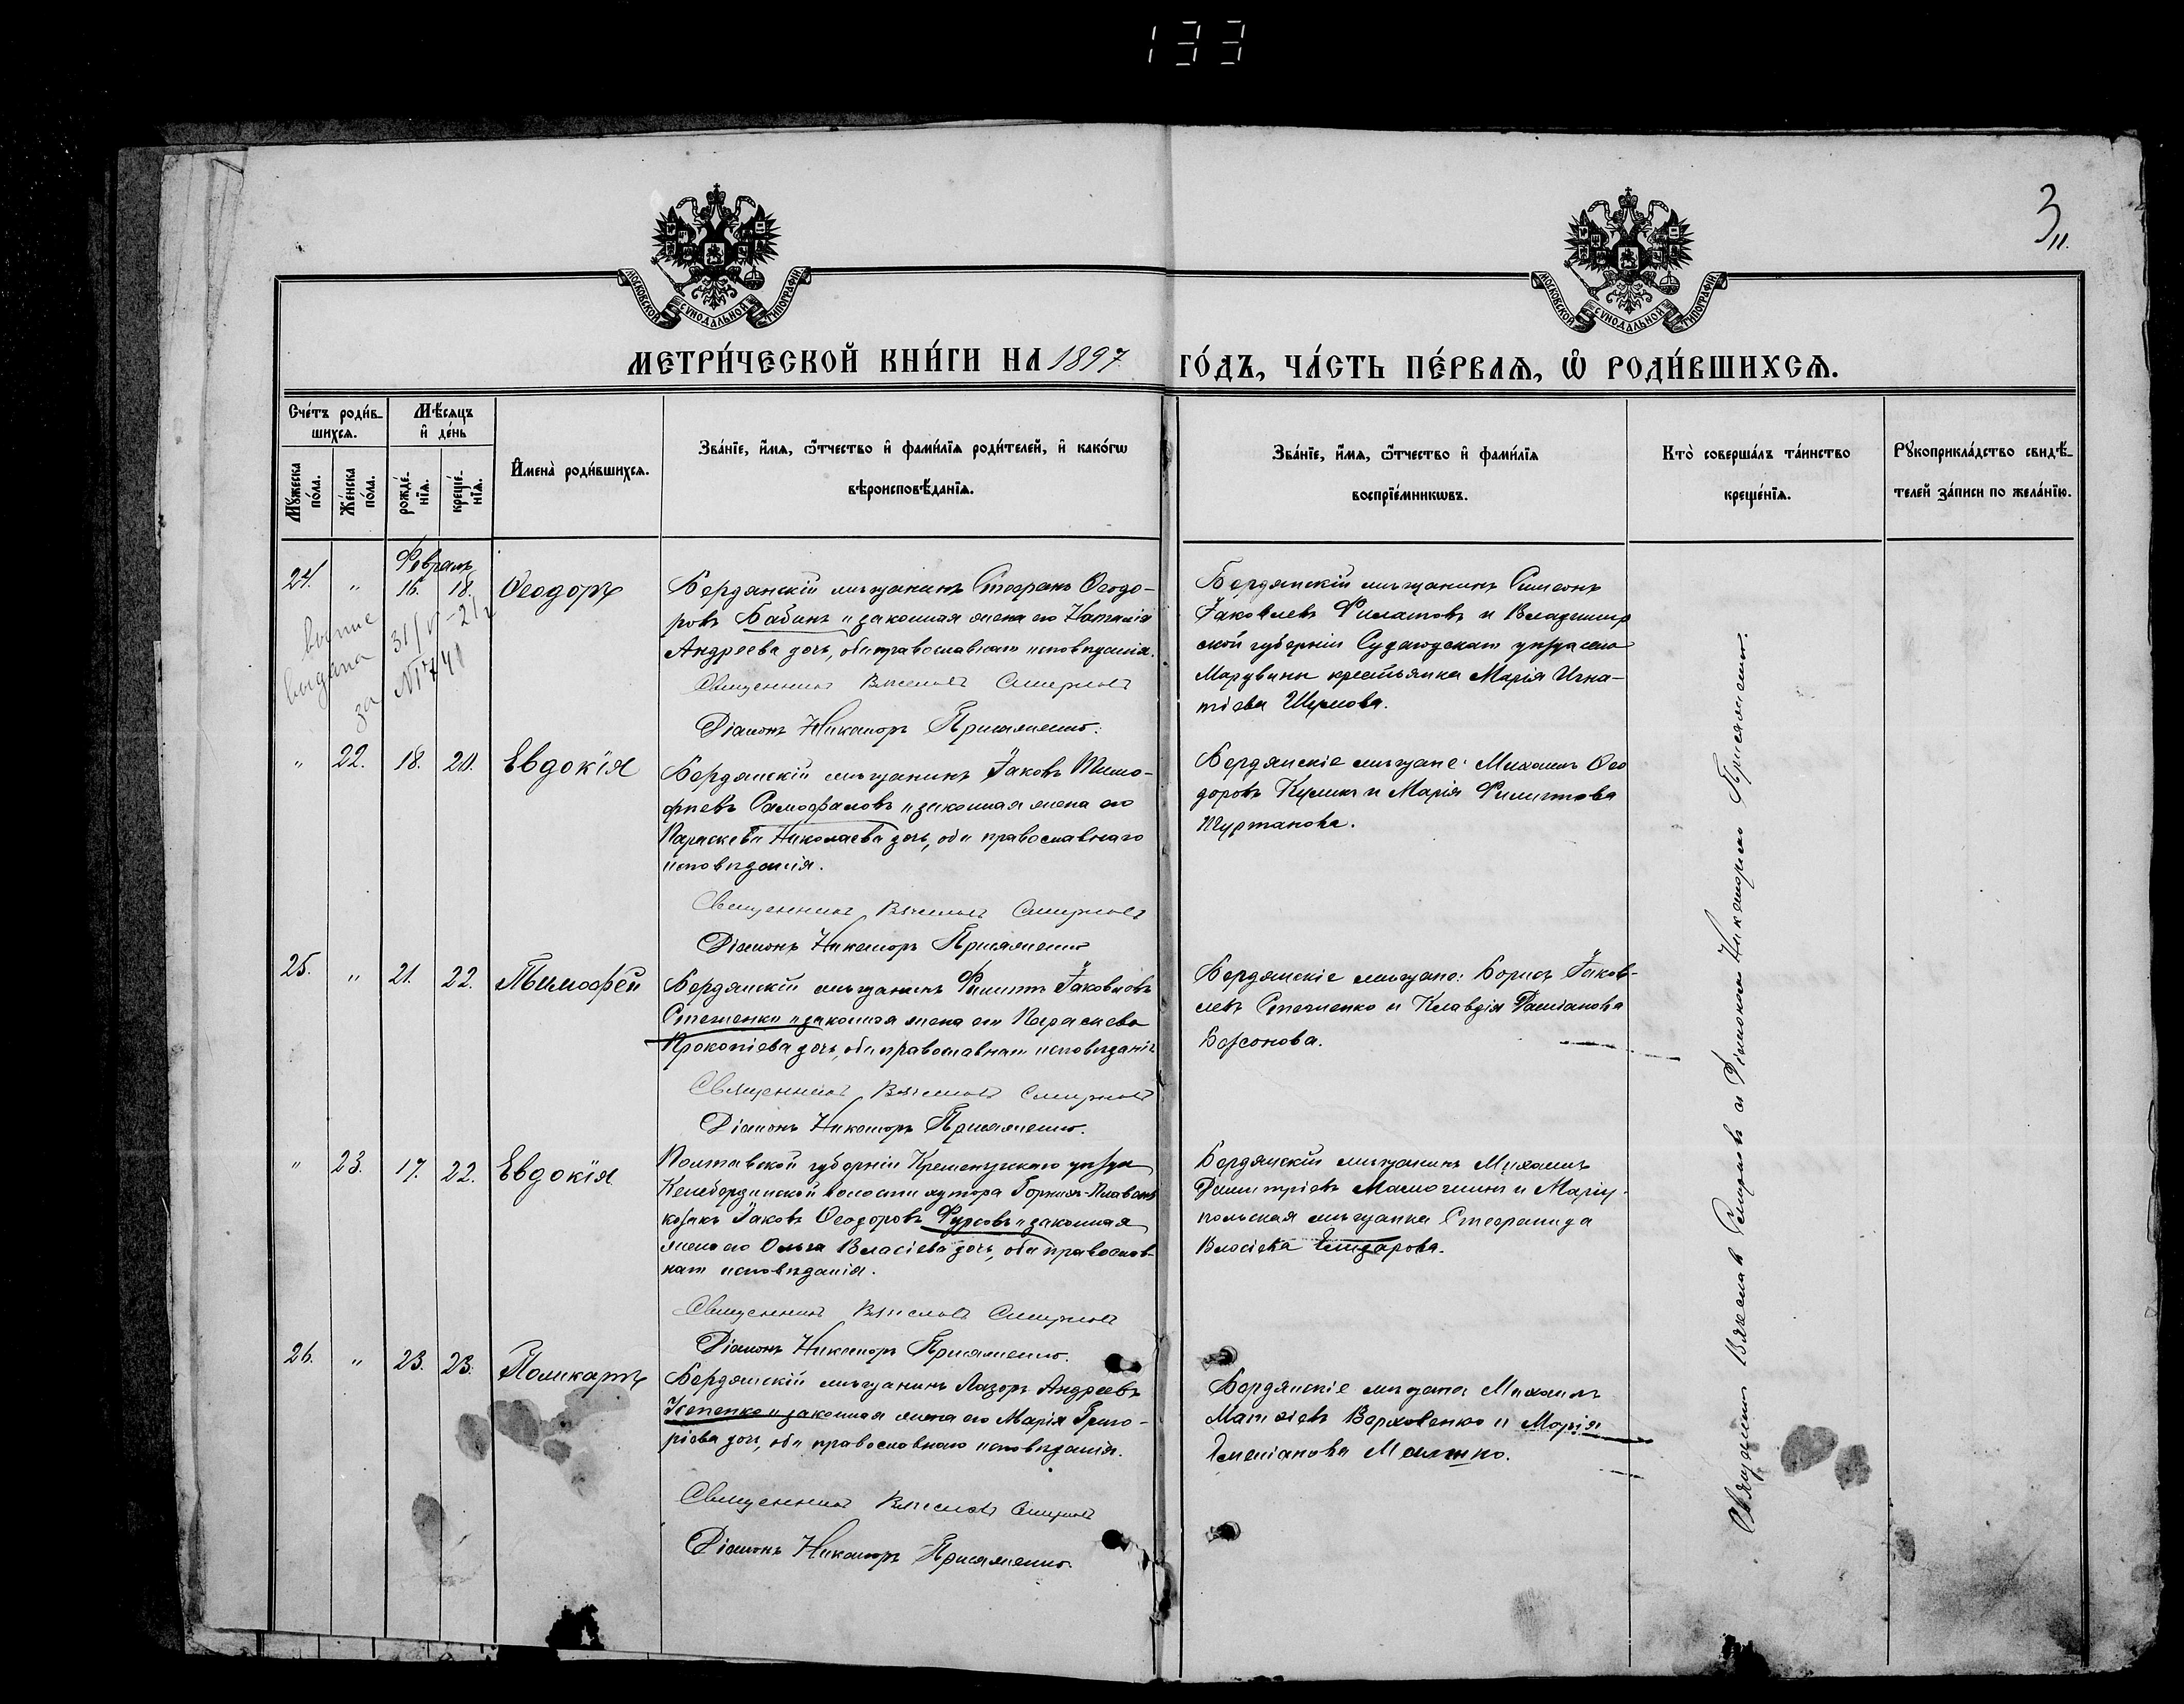 133
3
МОСКОВСКОЙ СѴНОДАЛЬНОЙ ТИПОГРАФІИ
МОСКОВСКОЙ СѴНОДАЛЬНОЙ ТИПОГРАФІИ
МЕТРИ́ЧЕСКОЙ КНИ́ГИ НА 1897 ГО́ДЪ, ЧА́СТЬ ПЕ́РВАѦ, Ѡ҆ РОДИ́ВШИХСѦ.
Сче́тъ роди́в-
шихсѧ.
Мѣ́сѧцъ
и҆ де́нь
Мꙋ́жеска
по́ла.
Же́нска
по́ла.
рожде́-
нїѧ.
креще́-
нїѧ.
И҆мена̀ роди́вшихсѧ.
Зва́нїе, и҆́мѧ, ѻ҆́тчество и҆ фами́лїѧ роди́телей, и҆ како́гѡ
вѣроисповѣ́данїѧ.
Зва́нїе, и҆́мѧ, ѻ҆́тчество и҆ фами́лїѧ
воспрїе́мникѡвъ.
Кто̀ соверша́лъ та́инство
креще́нїѧ.
Рꙋкоприкла́дство свидѣ́-
телей за́писи по жела́нїю.
Февраль
24. " 16. 18. Ѳеодоръ
Бердянскій мѣщанинъ Стефанъ Ѳеодо-
ровъ Бабинъ и законная жена его Наталія
Андреева дочь, оба православнаго исповѣданія.
Священникъ Вячеславъ Смирновъ
Діаконъ Никаноръ Присяженко.
Бердянскій мѣщанинъ Симеонъ
Іаковлевъ Филатовъ и Владимир
ской губерніи Судогодскаго уѣзда села
крестьянка Марія Игна-
тіева Шумова.
выдана
за № 741
" 22. 18. 20. Евдокія
Бердянскій мѣщанинъ Іаковъ Тимо-
фѣевъ Самофаловъ и законная жена его
Параскева Николаева дочь, оба православнаго
исповѣданія.
Священникъ Вячеславъ Смирновъ
Діаконъ Никаноръ Присяженко
Бердянскіе мѣщане: Михаилъ Ѳео
доровъ Куликъ и Марія Филиппова
25. " 21. 22. Тимофей
Бердянскій мѣщанинъ Филиппъ Іаковлевъ
Стеженко и законная жена его Параскева
Прокопіева дочь, оба православнаго исповѣданія
Священникъ Вячеславъ Смирновъ
Діаконъ Никаноръ Присяженко.
Бердянскіе мѣщане: Борисъ Іаков-
левъ Стеженко и Клавдія Даміанова
" 23. 17. 22. Евдокія
Полтавской губерніи Кременчугскаго уѣзда
Келебердянской волости хутора
козакъ Іаковъ Ѳеодоровъ Фурсовъ и законная
жена его Ольга Власіева дочь, оба православ-
наго исповѣданія.
Священникъ Вячеславъ Смирновъ
Діаконъ Никаноръ Присяженко.
Бердянскій мѣщанинъ Михаилъ
Димитріевъ и Маріу-
польская мѣщанка Стефанида
Власіева Елизарова.
26. " 23. 23. Поликарпъ
Бердянскій мѣщанинъ Лазорь Андреевъ
и законная жена его Марія Григо-
ріева дочь, оба православнаго исповѣданія.
Священникъ Вячеславъ Смирновъ
Діаконъ Никаноръ Присяженко.
Бердянскіе мѣщане Михаилъ
Верховенко и Марія
Емеліанова
Священникъ Вячеславъ Смирновъ и Діаконъ Никаноръ Присяженко.